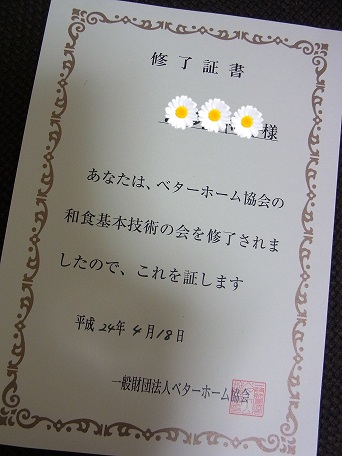 修了証書
様
あなたは、ベターホーム協会の
和食基本技術の会を修了されま
したので、これを証します
平成24年4月18日
一般財団法人ベターホーム協会